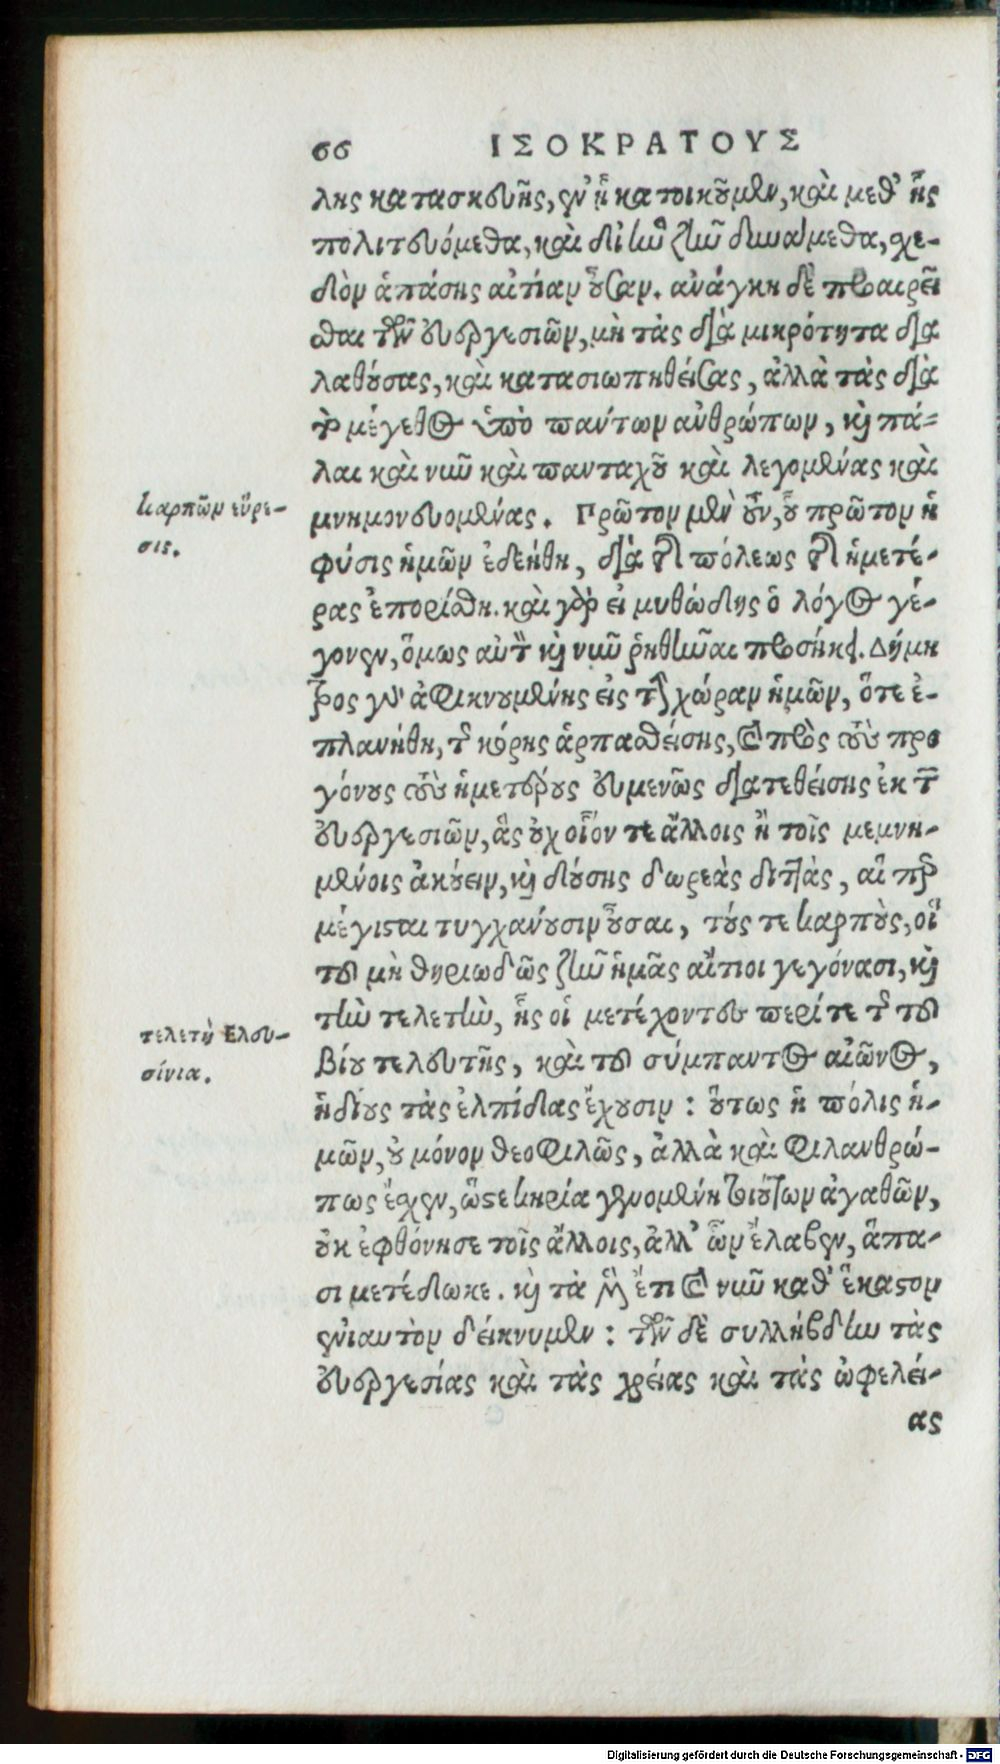 66 ΙΣΟΚΡΑΤΟΥΣ
λης κατασκευῆς, ἐν ᾗ κατοικοῦμεν, καὶ μεθ' ἧς
πολιτευόμεθα, καὶ δι' ἣν ζῆν δυνάμεθα, σχε-
δὸν ἁπάσης αἰτίαν οὖσαν. ἀνάγκη δὲ προαιρεῖ
σθαι τῶν εὐεργεσιῶν, μὴ τὰς διὰ μικρότητα δια
λαθούσας, καὶ κατασιωπηθείσας, ἀλλὰ τὰς διὰ
τὸ μέγεθος ὑπὸ παντων ἀνθρώπων, καὶ πά-
λαι καὶ νῦν καὶ πανταχοῦ καὶ λεγομένας καὶ
καρπῶν εὕρε-
σις.
μνημονευομένας. Πρῶτον μὲν οὖν, οὗ πρῶτον ἡ
φύσις ἡμῶν ἐδεήθη, διὰ τῆς πόλεως τῆς ἡμετέ-
ρας ἐπορίσθη. καὶ γὰρ εἰ μυθώδης ὁ λόγος γέ-
γονεν, ὅμως αὐτῷ καὶ νῦν ῥηθῆναι προσήκει. Δήμη
τρος γὰρ ἀφικνουμένης εἰς τὴν χώραν ἡμῶν, ὅτε ἐ-
πλανήθη, τῆς κόρης ἁρπασθείσης, καὶ πρὸς τοὺς προ
γόνους τοὺς ἡμετέρους εὐμενῶς διατεθείσης ἐκ τῶν
εὐεργεσιῶν, ἃς οὐχ οἷόν τε ἄλλοις ἢ τοῖς μεμνη-
μένοις ἀκούειν, καὶ δούσης δωρεὰς διττὰς, αἵ περ
μέγισται τυγχανούσιν οὖσαι, τούς τε καρποὺς, οἳ
τοῦ μὴ θηριωδῶς ζῆν ἡμᾶς αἴτιοι γεγόνασι, καὶ
τελετὴ Ἐλευ-
σίνια.
τὴν τελετὴν, ἧς οἱ μετέχοντες περί τε τῆς τοῦ
βίου τελευτῆς, καὶ τοῦ σύμπαντος αἰῶνος,
ἡδίους τὰς ἐλπίδας ἔχουσιν : οὕτως ἡ πόλις ἡ-
μῶν, οὐ μόνον θεοφιλῶς, ἀλλὰ καὶ φιλανθρώ-
πως ἔχεν, ὥστε κυρία γενομένη τοιούτων ἀγαθῶν,
οὐκ ἐφθόνησε τοῖς ἄλλοις, ἀλλ' ὧν ἔλαβεν, ἅπα-
σι μετέδωκε. καὶ τὰ μὲν ἔτι καὶ νῦν καθ' ἕκαστον
ἐνιαυτὸν δείκνυμεν : τῶν δὲ συλλήβδην τὰς
εὐεργεσίας καὶ τὰς χρείας καὶ τὰς ὠφελεί-
ας
Digitalisierung gefördert durch die Deutsche Forschungsgemeinschaft - DFG